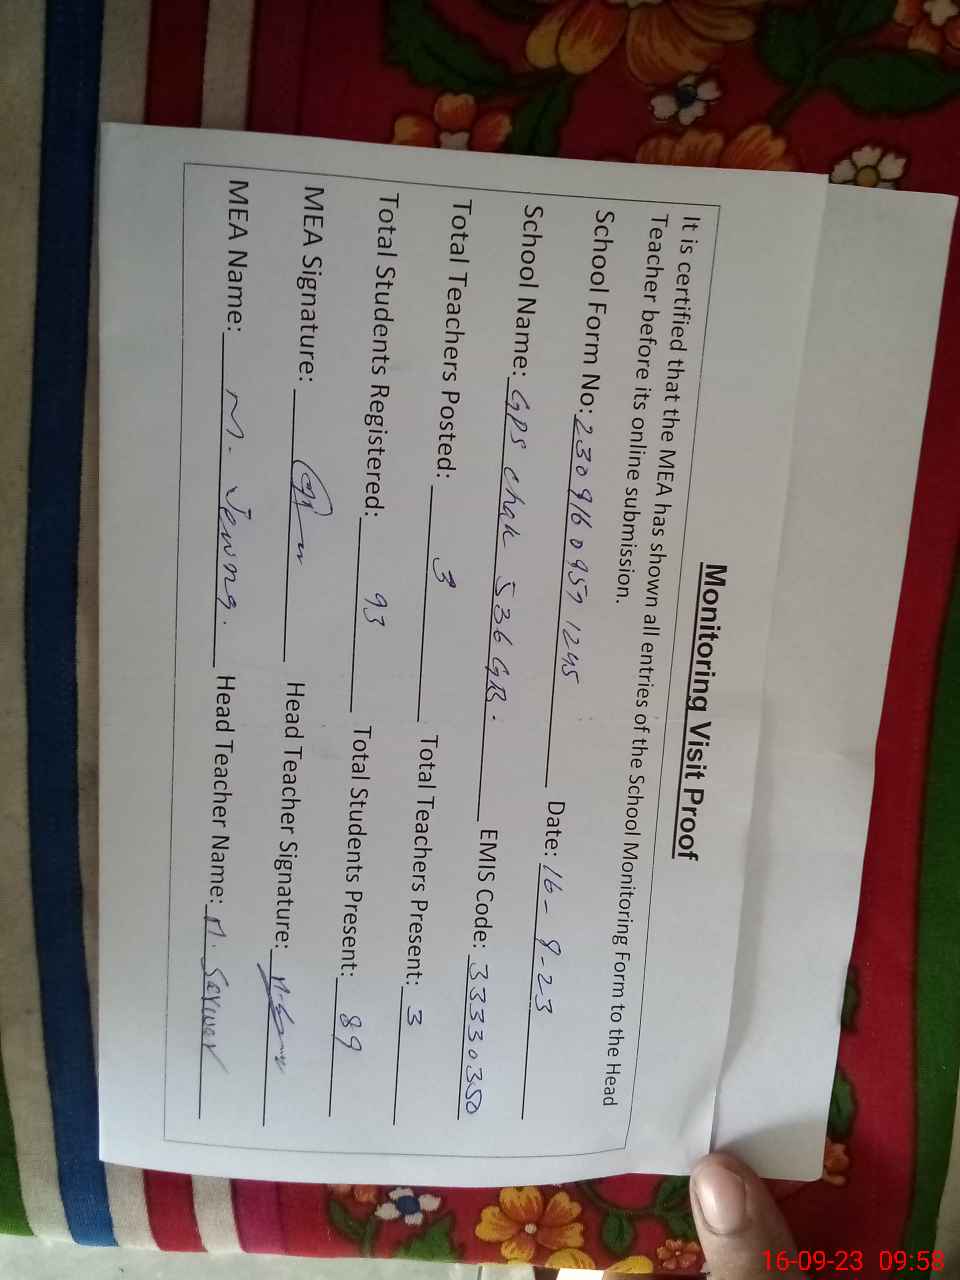 Monitoring Visit Proof
It is certified that the MEA has shown all entries of the School Monitoring Form to the Head
Teacher before its online submission.
School Form No: 230916 0959 1245 Date: 16-9-23
School Name: GPS chak 536 GB. EMIS Code: 33330350
Total Teachers Posted: 3 Total Teachers Present: 3
Total Students Registered: 93 Total Students Present: 89
MEA Signature: Head Teacher Signature:
MEA Name: M. Head Teacher Name: M. Sarwar
16-09-23 09:58